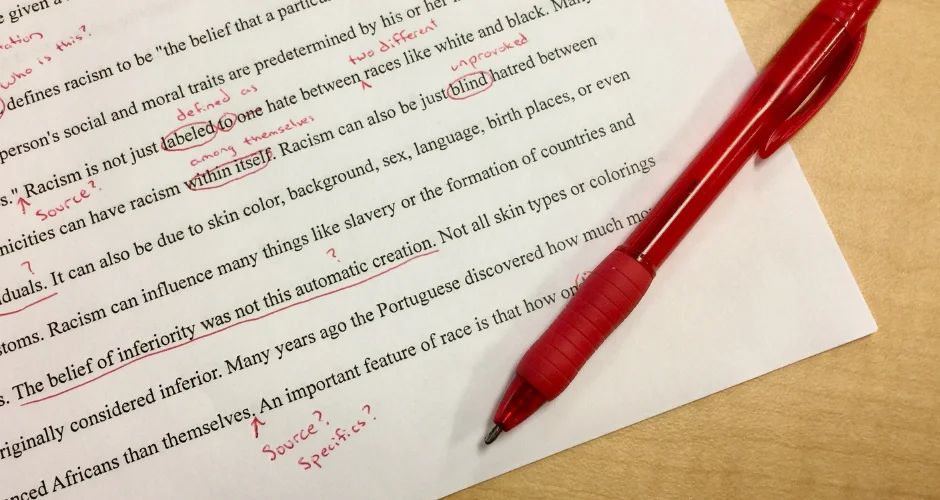 e given a
defines racism to be "the belief that a particu
who is this?
two different
person's social and moral traits are predetermined by his or her
defined as
unprovoked
s." Racism is not just labeled to one hate between races like white and black. Many
Source?
among themselves
nicities can have racism within itself. Racism can also be just blind hatred between
?
duals. It can also be due to skin color, background, sex, language, birth places, or even
stoms. Racism can influence many things like slavery or the formation of countries and
?
s. The belief of inferiority was not this automatic creation. Not all skin types or colorings
riginally considered inferior. Many years ago the Portuguese discovered how much mo
nced Africans than themselves. An important feature of race is that how on
Source?
Specifics?